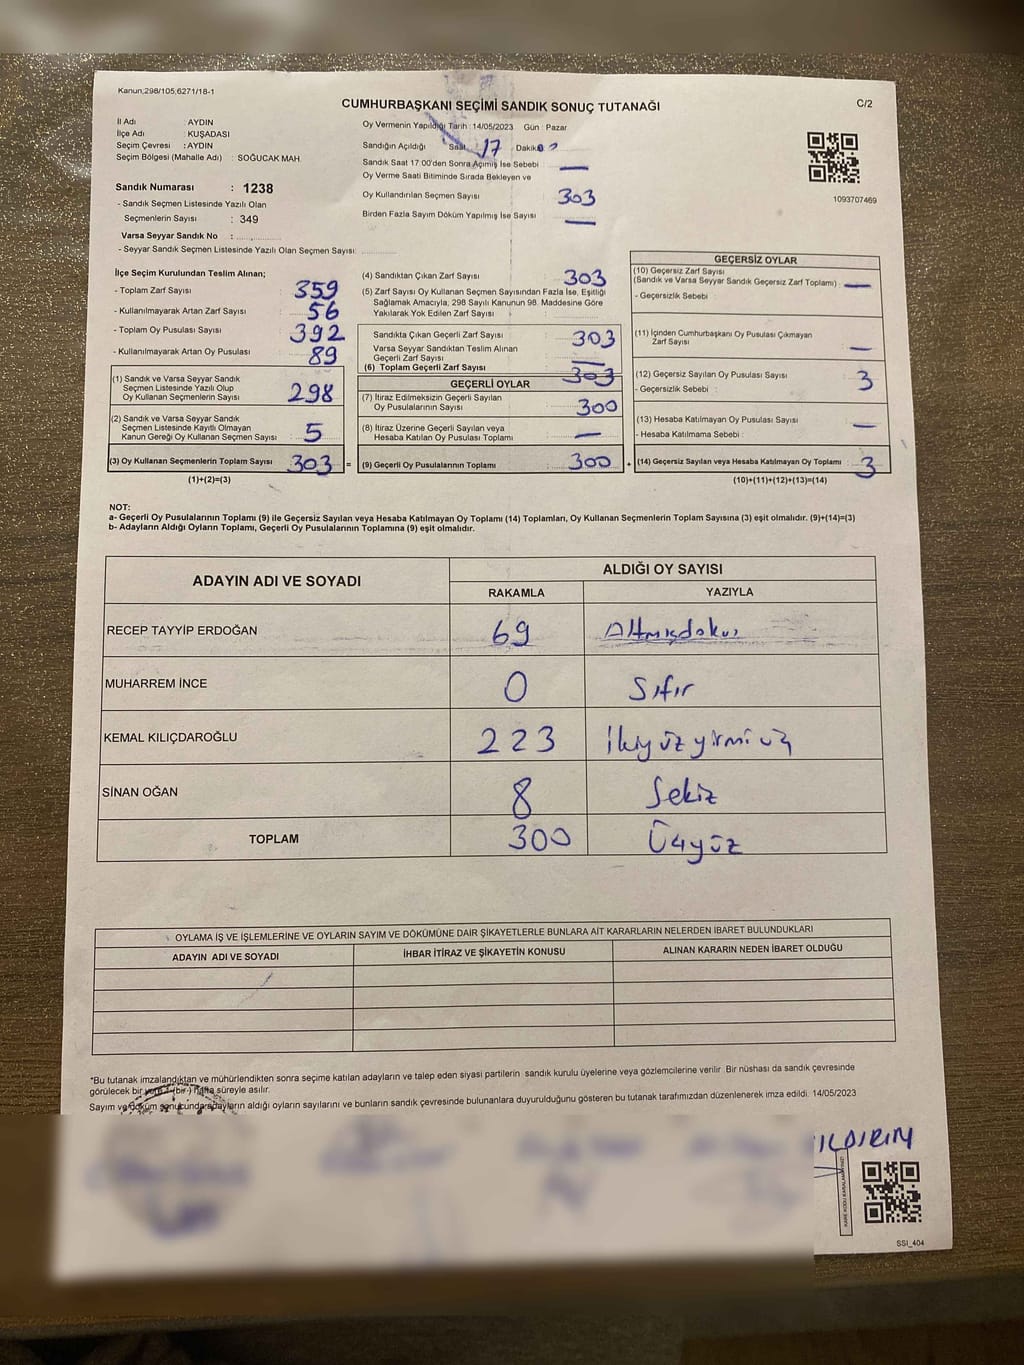 Kanun;298/105,6271/18-1
CUMHURBAŞKANI SEÇİMİ SANDIK SONUÇ TUTANAĞI
C/2
İl Adı : AYDIN
İlçe Adı : KUŞADASI
Seçim Çevresi : AYDIN
Seçim Bölgesi (Mahalle Adı) : SOĞUCAK MAH.
Oy Vermenin Yapıldığı Tarih : 14/05/2023 Gün : Pazar
Sandığın Açıldığı Saat 17 Dakika
Sandık Saat 17.00'den Sonra Açılmış İse Sebebi —
Oy Verme Saati Bitiminde Sırada Bekleyen ve
Oy Kullandırılan Seçmen Sayısı 303
Birden Fazla Sayım Döküm Yapılmış İse Sayısı —
1093707469
Sandık Numarası : 1238
- Sandık Seçmen Listesinde Yazılı Olan
Seçmenlerin Sayısı : 349
Varsa Seyyar Sandık No :
- Seyyar Sandık Seçmen Listesinde Yazılı Olan Seçmen Sayısı:
İlçe Seçim Kurulundan Teslim Alınan;
- Toplam Zarf Sayısı : 359
- Kullanılmayarak Artan Zarf Sayısı : 56
- Toplam Oy Pusulası Sayısı : 392
- Kullanılmayarak Artan Oy Pusulası : 89
(1) Sandık ve Varsa Seyyar Sandık
Seçmen Listesinde Yazılı Olup
Oy Kullanan Seçmenlerin Sayısı : 298
(2) Sandık ve Varsa Seyyar Sandık
Seçmen Listesinde Kayıtlı Olmayan
Kanun Gereği Oy Kullanan Seçmen Sayısı : 5
(3) Oy Kullanan Seçmenlerin Toplam Sayısı : 303 =
(1)+(2)=(3)
(4) Sandıktan Çıkan Zarf Sayısı : 303
(5) Zarf Sayısı Oy Kullanan Seçmen Sayısından Fazla İse, Eşitliği
Sağlamak Amacıyla, 298 Sayılı Kanunun 98. Maddesine Göre
Yakılarak Yok Edilen Zarf Sayısı :
Sandıkta Çıkan Geçerli Zarf Sayısı : 303
Varsa Seyyar Sandıktan Teslim Alınan
Geçerli Zarf Sayısı : —
(6) Toplam Geçerli Zarf Sayısı : 303
GEÇERLİ OYLAR
(7) İtiraz Edilmeksizin Geçerli Sayılan
Oy Pusulalarının Sayısı : 300
(8) İtiraz Üzerine Geçerli Sayılan veya
Hesaba Katılan Oy Pusulası Toplamı : —
(9) Geçerli Oy Pusulalarının Toplamı : 300 +
GEÇERSİZ OYLAR
(10) Geçersiz Zarf Sayısı
(Sandık ve Varsa Seyyar Sandık Geçersiz Zarf Toplamı) : —
- Geçersizlik Sebebi :
(11) İçinden Cumhurbaşkanı Oy Pusulası Çıkmayan
Zarf Sayısı : —
(12) Geçersiz Sayılan Oy Pusulası Sayısı : 3
- Geçersizlik Sebebi :
(13) Hesaba Katılmayan Oy Pusulası Sayısı : —
- Hesaba Katılmama Sebebi :
(14) Geçersiz Sayılan veya Hesaba Katılmayan Oy Toplamı : 3
(10)+(11)+(12)+(13)=(14)
NOT:
a- Geçerli Oy Pusulalarının Toplamı (9) ile Geçersiz Sayılan veya Hesaba Katılmayan Oy Toplamı (14) Toplamları, Oy Kullanan Seçmenlerin Toplam Sayısına (3) eşit olmalıdır. (9)+(14)=(3)
b- Adayların Aldığı Oyların Toplamı, Geçerli Oy Pusulalarının Toplamına (9) eşit olmalıdır.
ADAYIN ADI VE SOYADI
ALDIĞI OY SAYISI
RAKAMLA YAZIYLA
RECEP TAYYİP ERDOĞAN 69 Altmışdokuz
MUHARREM İNCE 0 Sıfır
KEMAL KILIÇDAROĞLU 223 İkiyüzyirmiüç
SİNAN OĞAN 8 Sekiz
TOPLAM 300 Üçyüz
OYLAMA İŞ VE İŞLEMLERİNE VE OYLARIN SAYIM VE DÖKÜMÜNE DAİR ŞİKAYETLERLE BUNLARA AİT KARARLARIN NELERDEN İBARET BULUNDUKLARI
ADAYIN ADI VE SOYADI İHBAR İTİRAZ VE ŞİKAYETİN KONUSU ALINAN KARARIN NEDEN İBARET OLDUĞU
*Bu tutanak imzalandıktan ve mühürlendikten sonra seçime katılan adayların ve talep eden siyasi partilerin sandık kurulu üyelerine veya gözlemcilerine verilir. Bir nüshası da sandık çevresinde
görülecek bir yere 1 (bir) hafta süreyle asılır.
Sayım ve döküm sonucunda adayların aldığı oyların sayılarını ve bunların sandık çevresinde bulunanlara duyurulduğunu gösteren bu tutanak tarafımızdan düzenlenerek imza edildi. 14/05/2023
ILDIRIM
SSI_404